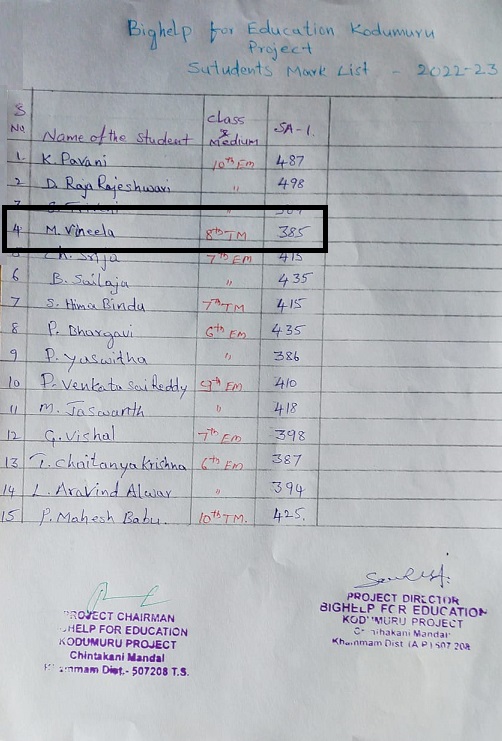 Bighelp for Education Kodumuru
Project
Sutudents Mark List - 2022-23
S No Name of the Student class & Medium SA-1.
1. K. Pavani 10th EM 487
2 D. Raja Rajeshwari " 498
3
4 M. Viheela 8th TM 385
5 Ch. Srija 7th EM 415
6 B. Sailaja " 435
7 S. Hima Bindu 7th TM 415
8 P. Bhargavi 6th EM 435
9 P. Yaswitha " 386
10 P. Venkata Sai Reddy 9th EM 410
11 M. Jaswanth " 418
12 G. Vishal 7th EM 398
13 T. Chaitanya Krishna 6th EM 387
14 L. Aravind Alwar " 394
15 P. Mahesh Babu. 10th TM. 425.
PROJECT CHAIRMAN
GHELP FOR EDUCATION
KODUMURU PROJECT
Chintakani Mandal
Khammam Dist.- 507208 T.S.
PROJECT DIRECTOR
BIGHELP FOR EDUCATION
KODUMURU PROJECT
Chinthakani Mandal
Khammam Dist (A P) 507 208